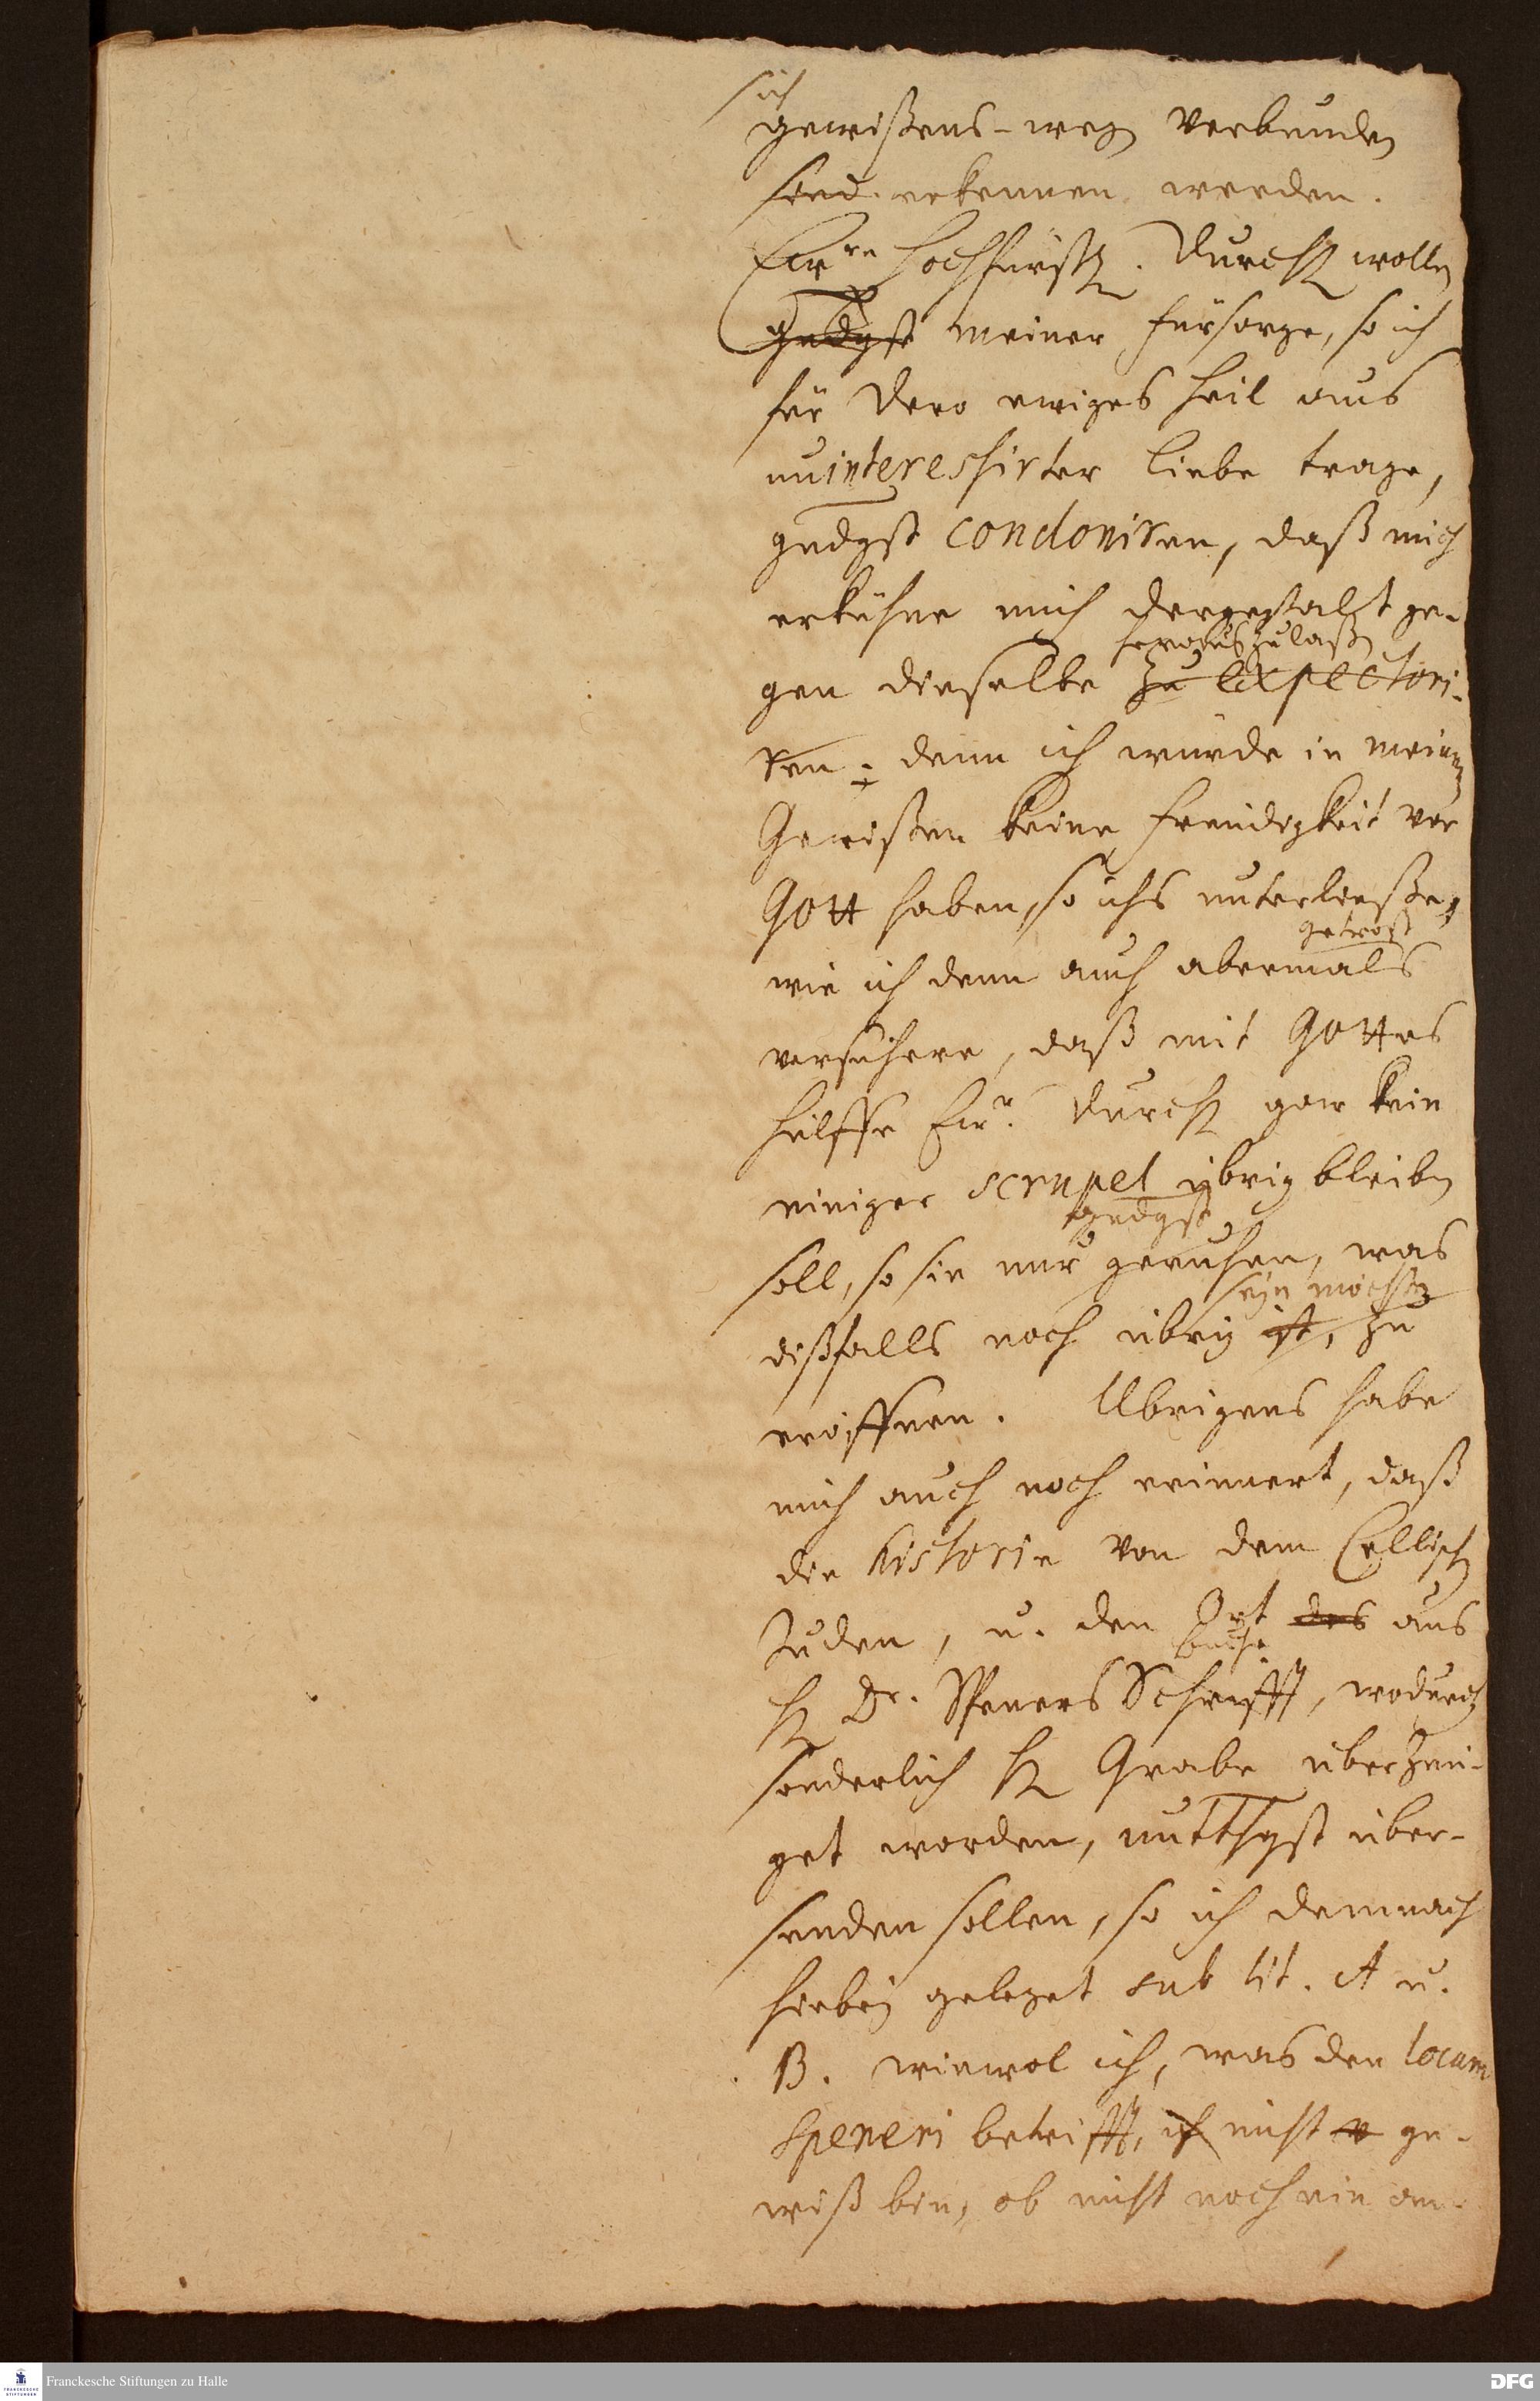 sich
gewißens-weg verbunden
sind erkennen werden.
Ewre hochfürstl. Durchl wollen
gndgst meiner fürsorge, so ich
für Dero ewiges heil aus
uninteressirter liebe trage,
gndgst condoniren, daß mich
erkühne mich dergestalt ge-
herauszulaßen
gen dieselbe zu expectori-
ren; denn ich würde in meinem
Gewißen keine freudigkeit vor
Gott haben, so ichs unterließe,
getrost
wie ich denn auch abermals
versichere, daß mit Gottes
hülffe Ewr. Durchl gar kein
einiger scrupel übrig bleiben
gndgst
soll, so sie nur geruhen, was
seyn möchte
dißfalls noch übrig ist, zu
eröffnen. Ubrigens habe
mich auch noch erinnert, daß
die historie von dem Cellischen
Juden, u. den Ort des aus
buche
H Dr. Speners Schrifft, wodurch
sonderlich H Grabe überzeu-
get worden, untthgst über-
senden sollen, so ich demnach
hiebey geleget sub lit. A u.
B. wiewol ich, was den locum
Speneri betrifft, ich nicht ge-
wiß bin, ob nicht noch ein an-
Franckesche Stiftungen zu Halle
DFG